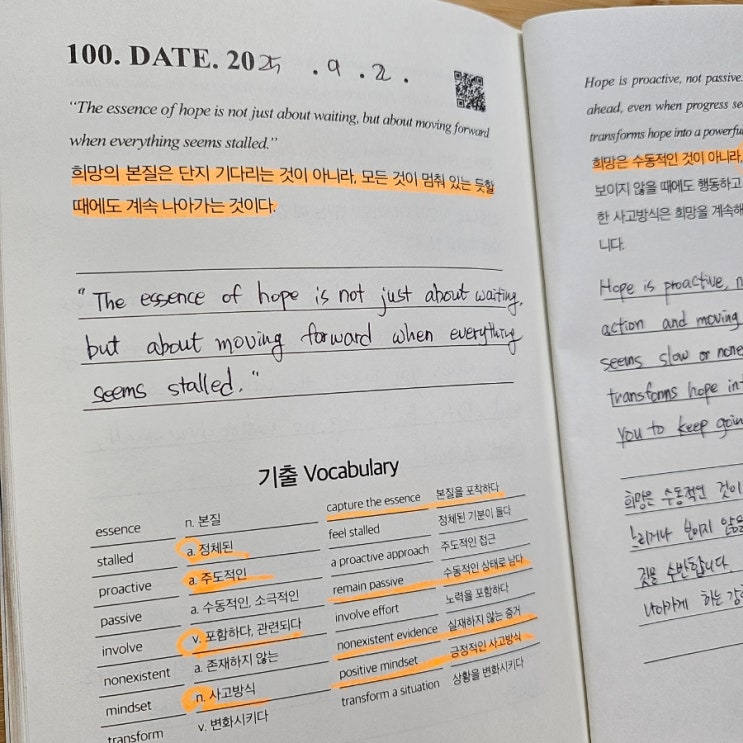 100. DATE. 2025 . 9 . 2 .
“The essence of hope is not just about waiting, but about moving forward
when everything seems stalled.”
희망의 본질은 단지 기다리는 것이 아니라, 모든 것이 멈춰 있는 듯할
때에도 계속 나아가는 것이다.
“The essence of hope is not just about waiting,
but about moving forward when everything
seems stalled.”
기출 Vocabulary
essence n. 본질 capture the essence 본질을 포착하다
stalled a. 정체된 feel stalled 정체된 기분이 들다
proactive a. 주도적인 a proactive approach 주도적인 접근
passive a. 수동적인, 소극적인 remain passive 수동적인 상태로 남다
involve v. 포함하다, 관련되다 involve effort 노력을 포함하다
nonexistent a. 존재하지 않는 nonexistent evidence 실재하지 않는 증거
mindset n. 사고방식 positive mindset 긍정적인 사고방식
transform v. 변화시키다 transform a situation 상황을 변화시키다
Hope is proactive, not passive.
ahead, even when progress
transforms hope into a powerful
희망은 수동적인 것이 아니라,
보이지 않을 때에도 행동하고
한 사고방식은 희망을 계속해
니다.
Hope is proactive,
action and moving
seems slow or
transforms hope
you to keep going
희망은 수동적인 것이
느리거나 보이지 않을
것을 수반합니다.
나아가게 하는